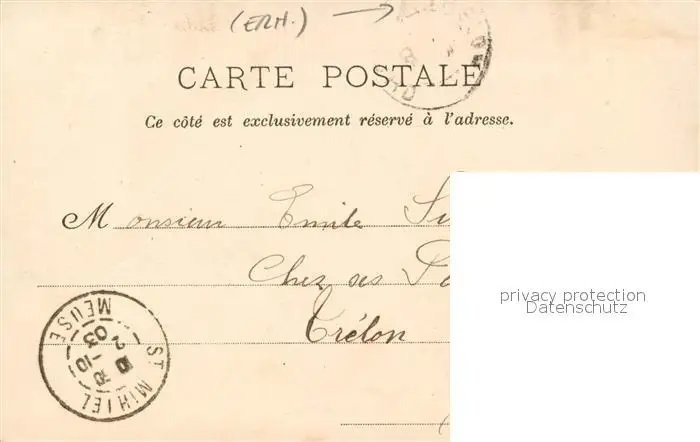 (ERH.)
CARTE POSTALE
Ce côté est exclusivement réservé à l'adresse.
Monsieur Emile
Chez ses
Trélon
privacy protection
Datenschutz
ST MIHIEL
MEUSE
10
03